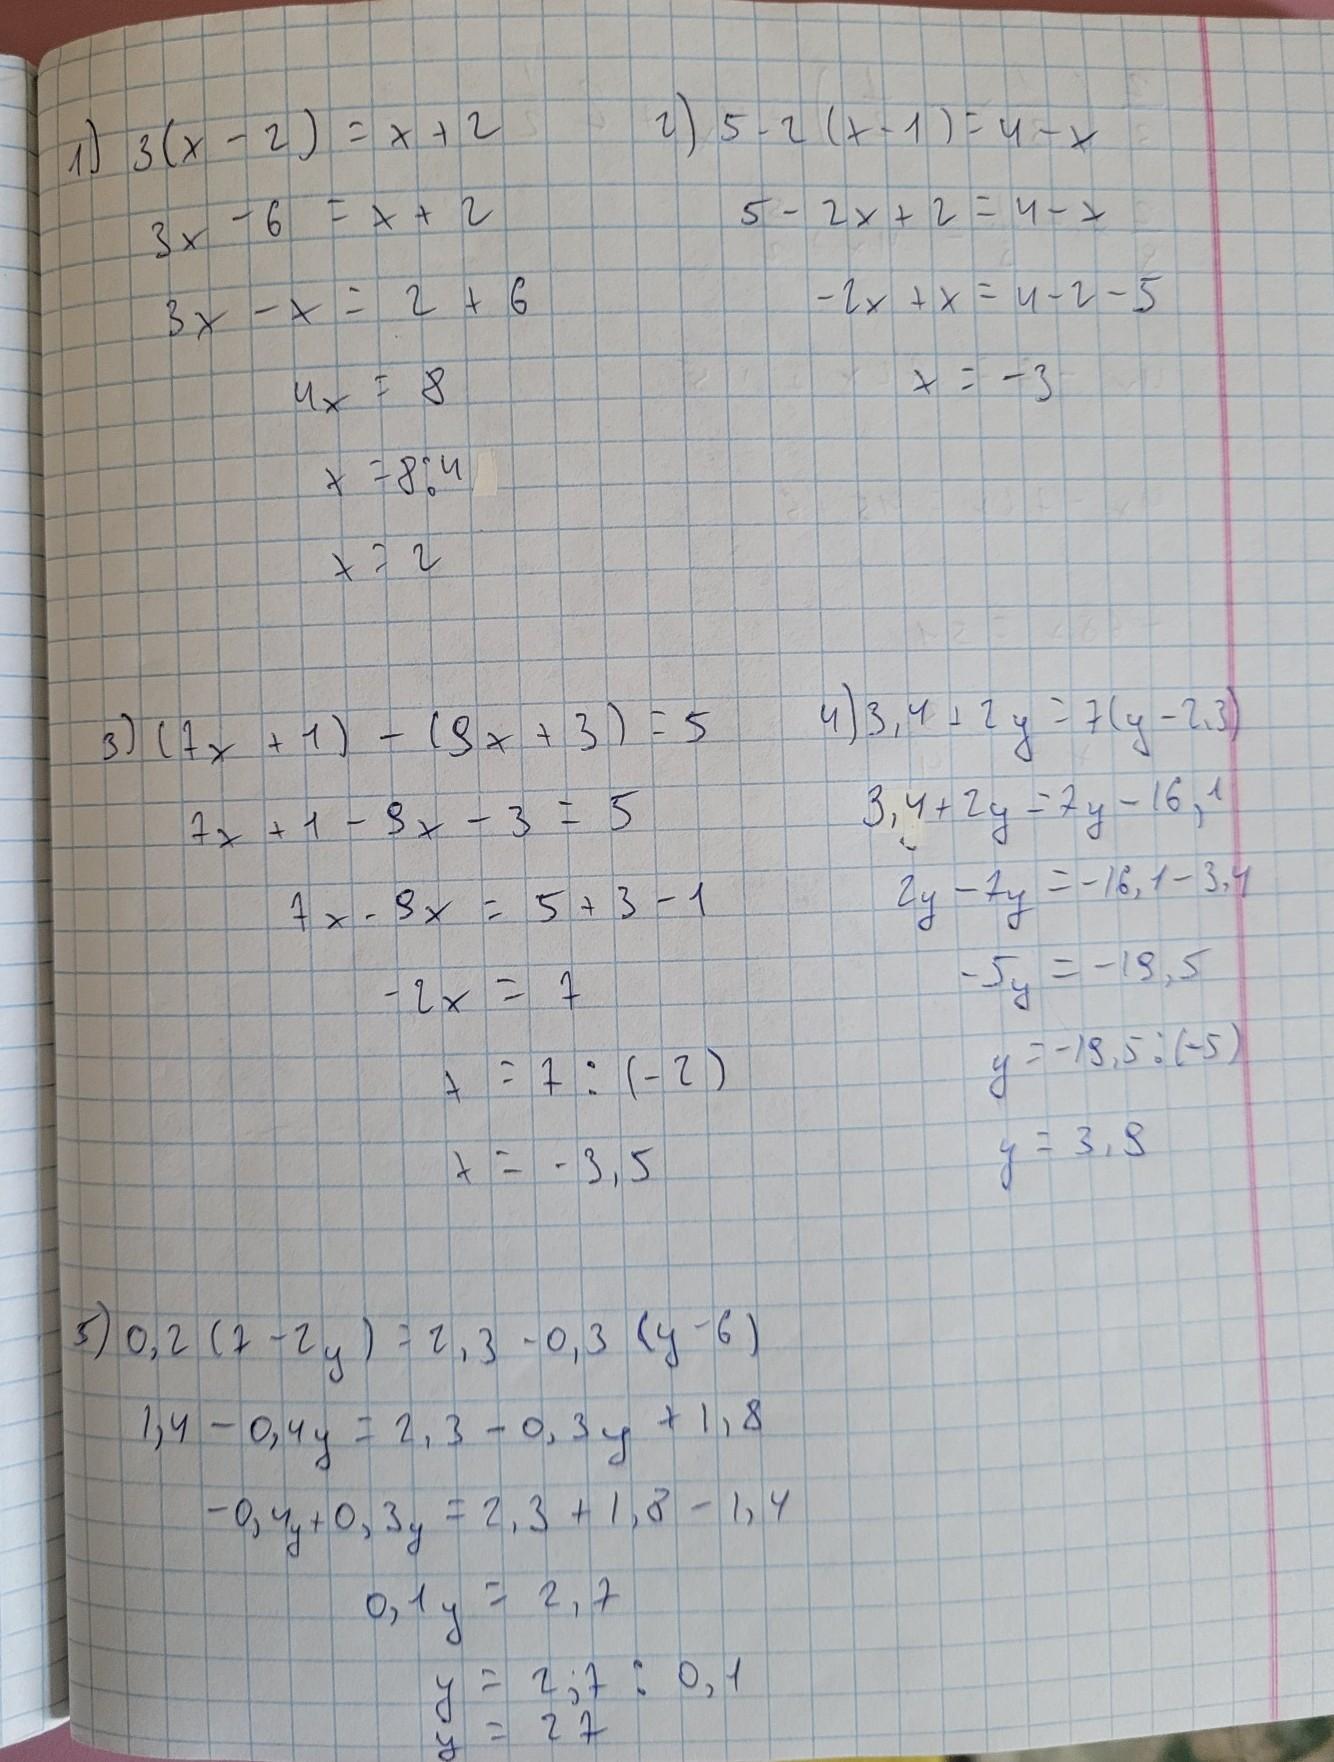 1) 3(x - 2) = x + 2
3x - 6 = x + 2
3x - x = 2 + 6
4x = 8
x = 8:4
x = 2
2) 5 - 2(x - 1) = 4 - x
5 - 2x + 2 = 4 - x
-2x + x = 4 - 2 - 5
x = -3
3) (7x + 1) - (9x + 3) = 5
7x + 1 - 9x - 3 = 5
7x - 9x = 5 + 3 - 1
-2x = 7
x = 7 : (-2)
x = -3,5
4) 3,4 + 2y = 7(y - 2,3)
3,4 + 2y = 7y - 16,1
2y - 7y = -16,1 - 3,4
-5y = -19,5
y = -19,5 : (-5)
y = 3,9
5) 0,2(7 - 2y) = 2,3 - 0,3(y - 6)
1,4 - 0,4y = 2,3 - 0,3y + 1,8
-0,4y + 0,3y = 2,3 + 1,8 - 1,4
0,1y = 2,7
y = 2,7 : 0,1
y = 27